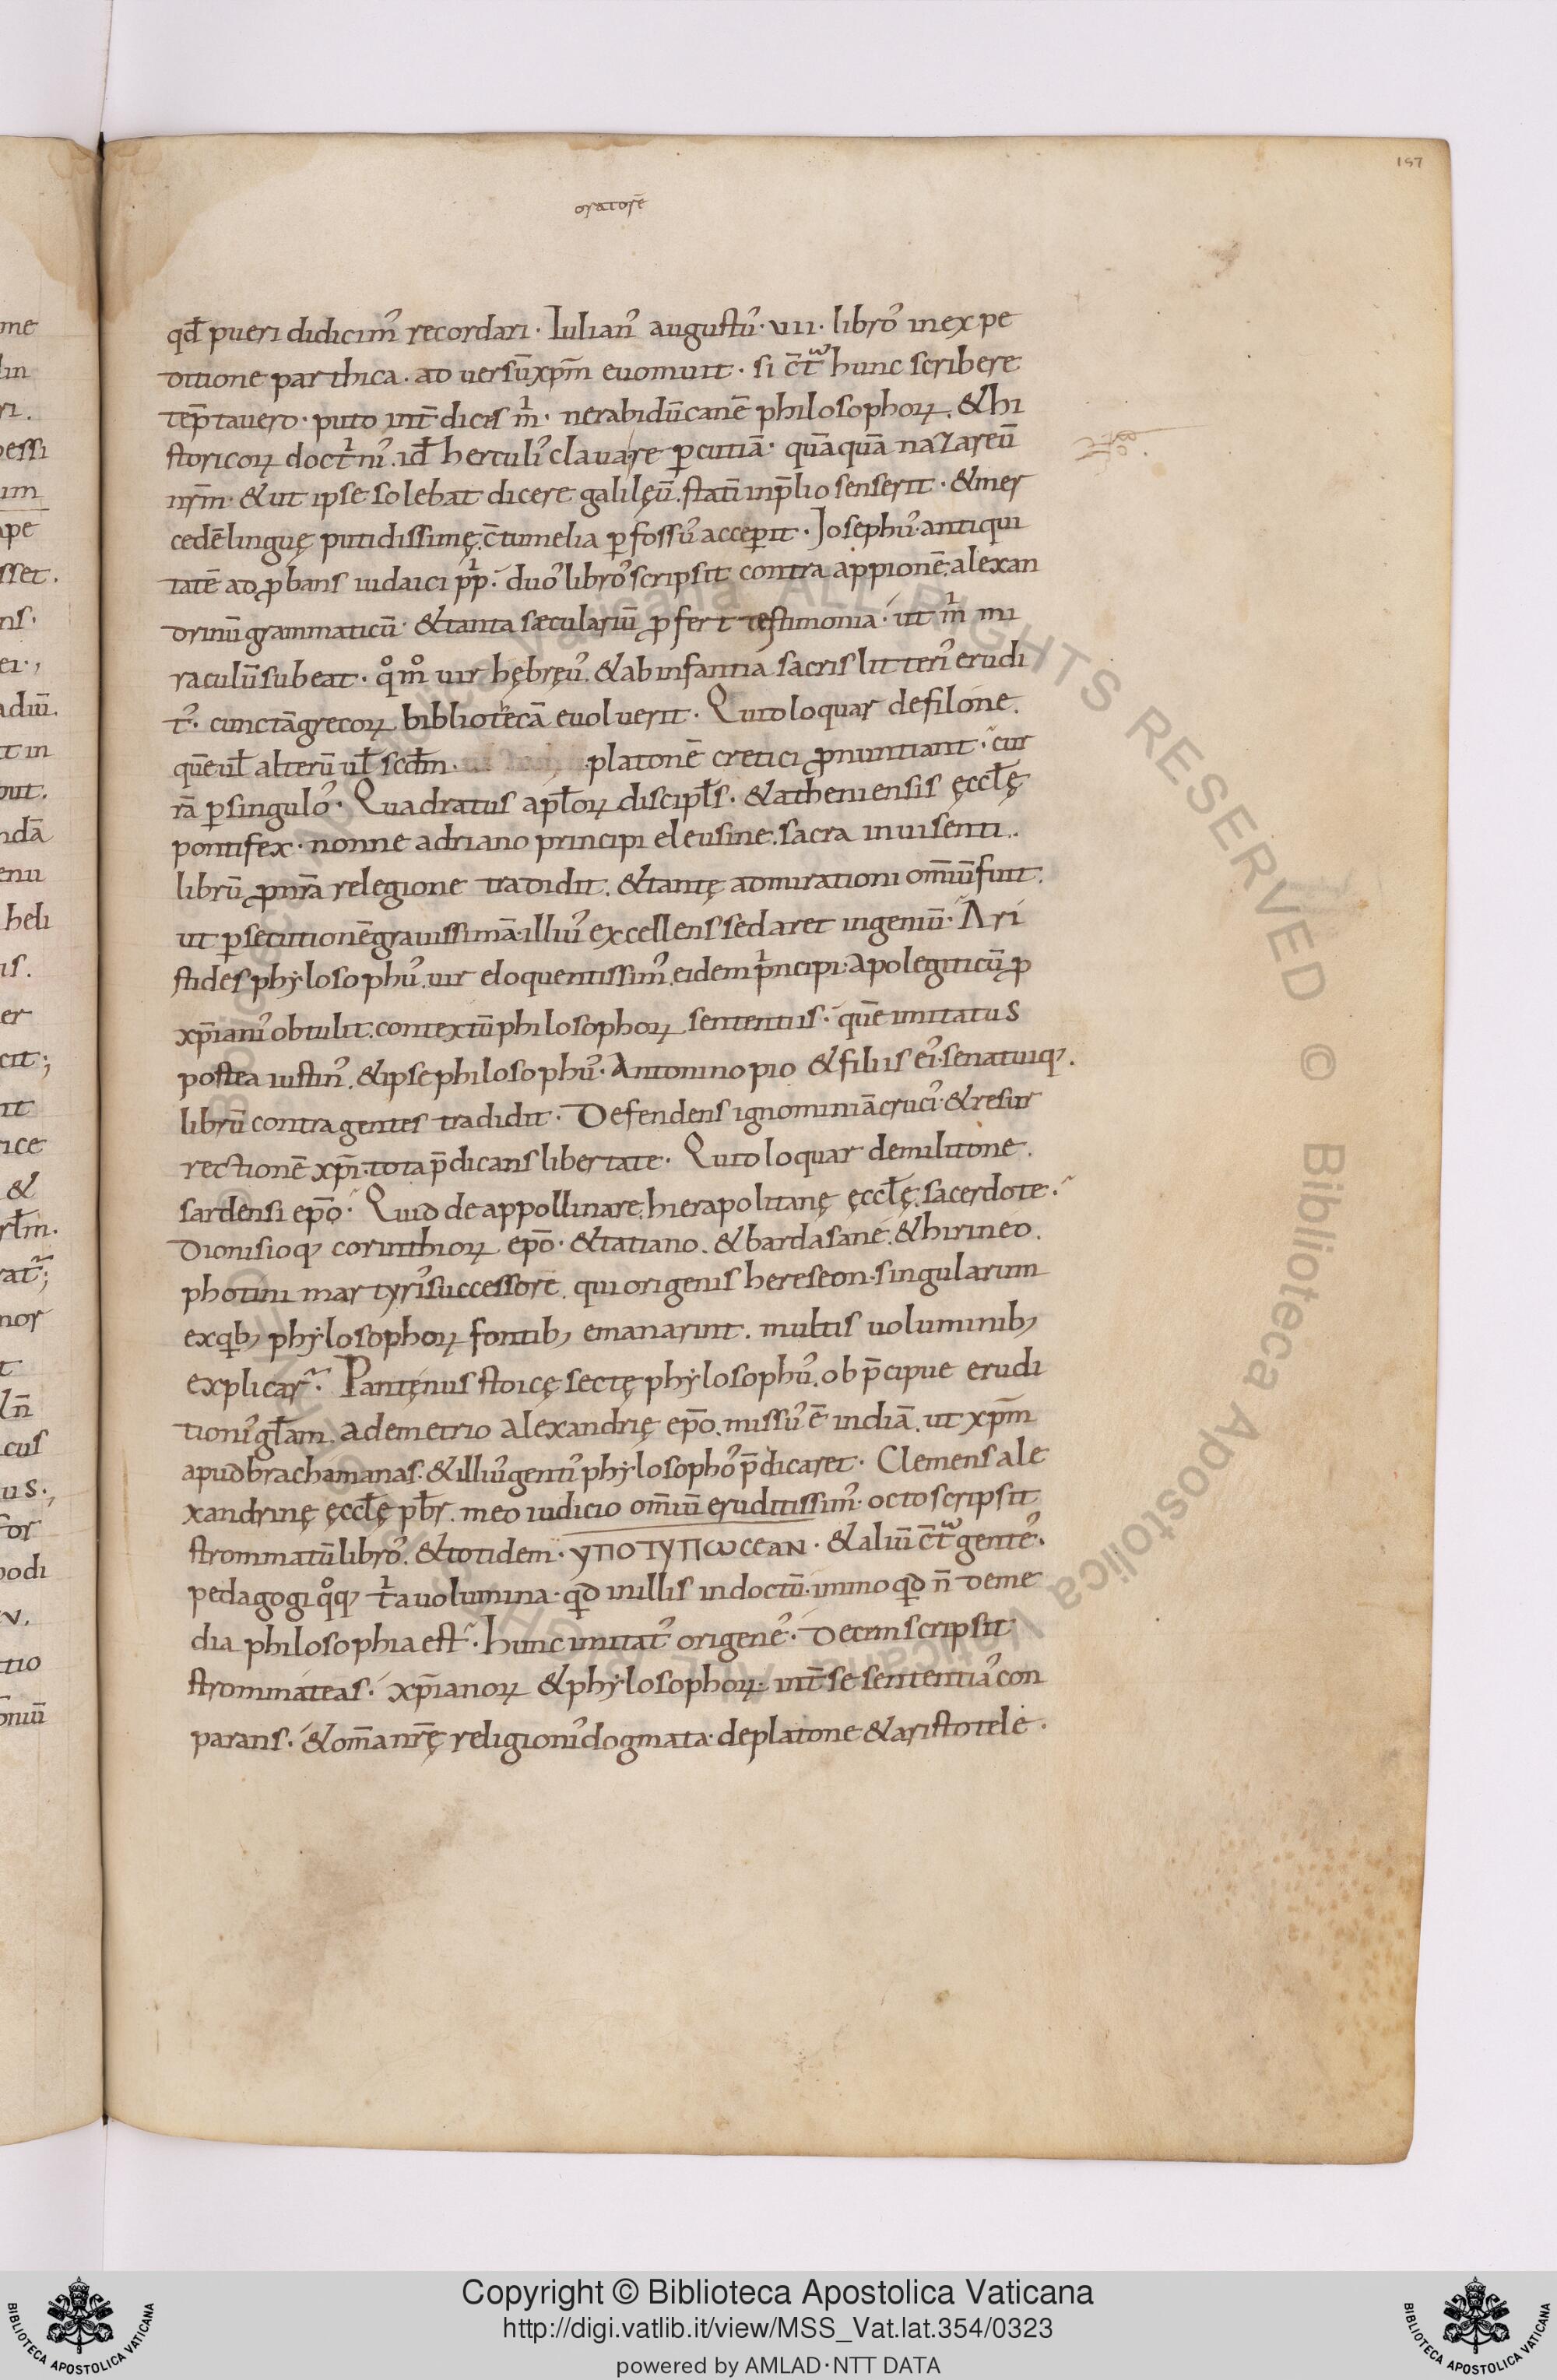 157
oratorē
qđ pueri didicimꝰ recordari · Iulianꝰ auguſtꝰ · vii · libroꝰ in expe
ditione parthica · ad uerſū xp̄m euomuit · ſi c̄tͬ hunc ſcribere
tēp̄tauero · puto int̄ dicis m̄ · ne rabidū canē philoſophoꝝ · & hi
ſtoricoꝝ doct̄niꝰ · id̄ herculiꝰ claua re ꝑcutiā · quāquā nazareū
nr̄m · & ut ipſe ſolebat dicere galilęū · ſtatī in p̄lio ſenſerit · & mer
cedē linguę putidiſſimę · c̄tumelia ꝑfoſſuꝰ acceꝑit · Ioſephuꝰ · antiqui
tatē adꝓbans iudaici pp̄ · duoꝰ libroꝰ ſcripſit contra appionē · alexan
drinū grammaticū · & tanta sæculariū ꝓfert teſtimonia · ut m̄ mi
raculū ſubeat · qͦmͦ uir hębręuꝰ · & ab infantia ſacriſ litteriꝰ erudi
tꝰ · cunctā grecoꝝ bibliotecā euoluerit · Quid loquar de filone ·
quē ul̄ alterū ul̄ ſcd̄m · platonē cretici ꝓnuntiant · cur
rā ꝑ ſinguloꝰ · Quadratus apl̄oꝝ diſcipl̄s · & athenienſis ęccl̄ę
pontifex · nonne adriano principi eleuſine · ſacra inuiſenti ·
librū ꝓ nr̄a relegione tradidit · & tantę admirationi om̄iū fuit ·
ut ꝑſecutionē grauiſſimā · illiuꝰ excellens ſedaret ingeniū · Ari
ſtides phyloſophuꝰ · uir eloquentiſſimꝰ · eidem p̄ncipi · apolegiticū ꝓ
xp̄ianiꝰ obtulit · contextū philoſophoꝝ ſententiis · quē imitatus
poſtea iuſtinꝰ · & ipſe philoſophuꝰ · Antonino pio & filiis eiꝰ · ſenatuiqꝫ ·
librū contra gentes tradidit · Defendens ignominiā cruciꝰ · & reſur
rectionē xp̄i · tota p̄dicans libertate · Quid loquar de militone ·
ſardenſi ep̄o · Quid de appollinare · hierapolitanę ęccl̄ę · ſacerdote ·
Dioniſioqꝫ corinthioꝝ ep̄o · & tatiano · & bardaſane · & hirineo ·
photini martyriꝰ ſucceſſore · qui origenis hereſeon · ſingularum
ex qb; phyloſophoꝝ fontib; emanarint · multis uoluminib;
explicar̄ · Pantęnus ſtoicę ſectę phyloſophuꝰ · ob p̄cipue erudi
tioniꝰ gl̄am · a demetrio alexandrię ep̄o · miſſuꝰ ē indiā · ut xp̄m
apud brachamanas · & illiuꝰ gentiꝰ phyloſophoꝰ p̄dicaret · Clemens ale
xandrinę ęccl̄ę pb̄r · meo iudicio om̄iū eruditiſſimꝰ · octo ſcripſit
ſtrommatū libroꝰ · & totidem · ΥΠΟΤΥΠωCΕΑΝ · & aliū c̄tͬ genteꝰ ·
pedagogi qͦqꝫ t̄a uolumina · qđ in illis indoctū · immo qđ n̄ de me
dia philoſophia eſt · hunc imitatꝰ origeneꝰ · Decem ſcripſit
ſtrommateas · xp̄ianoꝝ & phyloſophoꝝ · int̄ ſe ſententiaꝰ con
parans · & om̄a nr̄ę religioniꝰ dogmata · de platone & ariſtotele ·
Copyright © Biblioteca Apostolica Vaticana
http://digi.vatlib.it/view/MSS_Vat.lat.354/0323
powered by AMLAD·NTT DATA